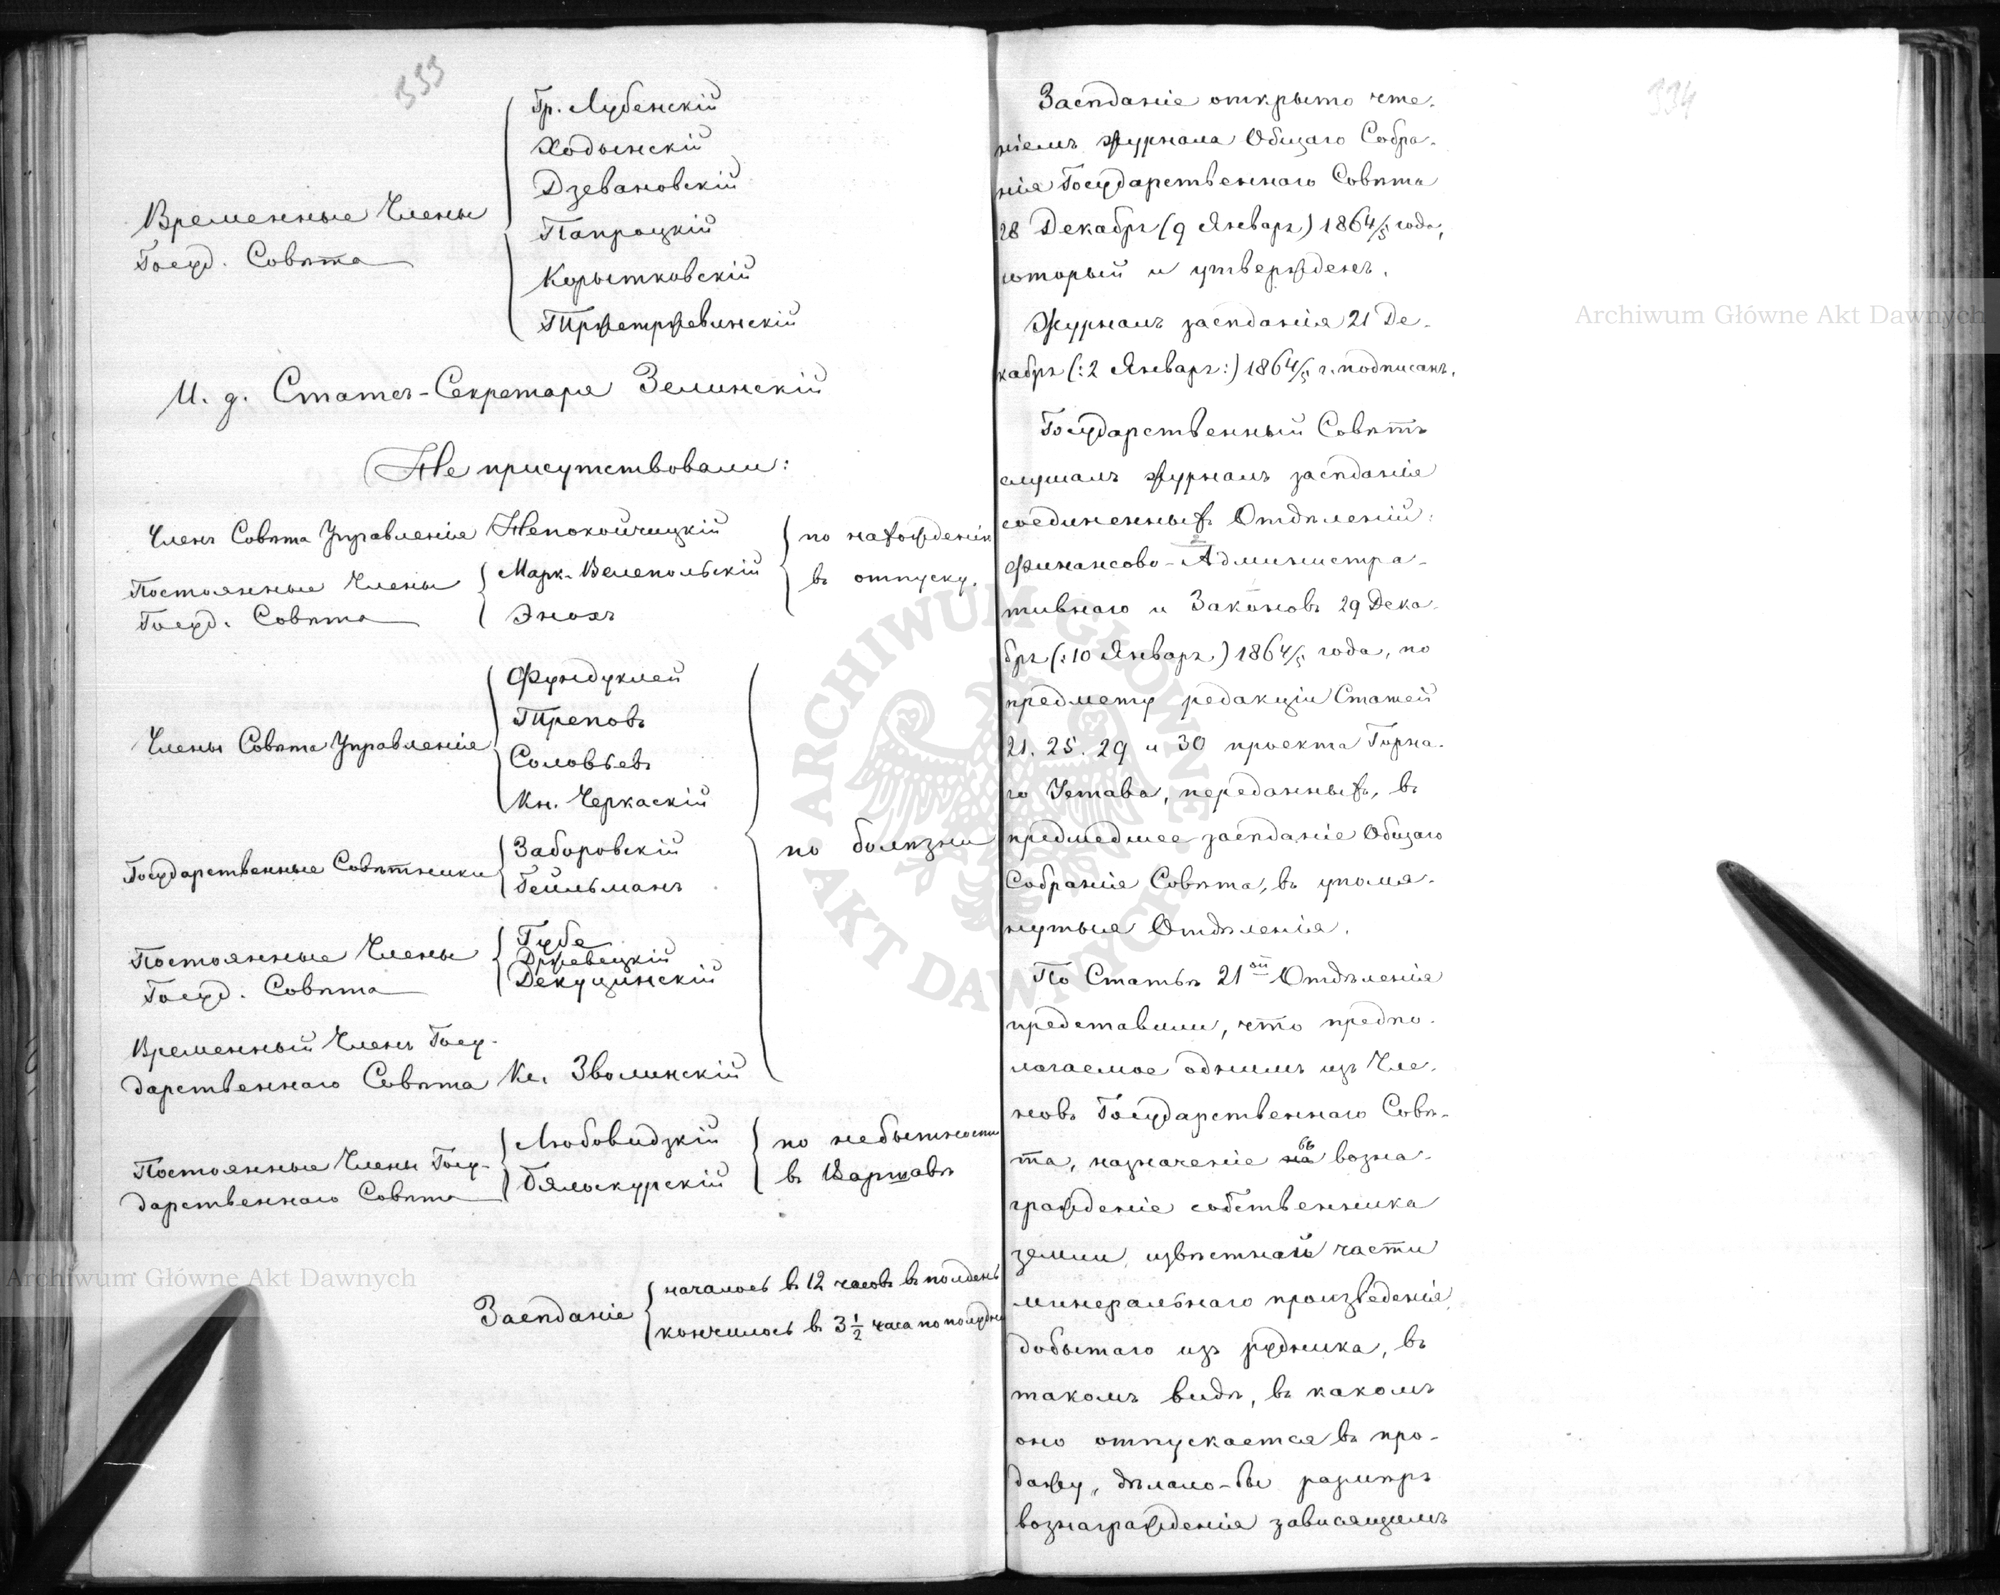 333
Временные Члены
Госуд. Совѣта
Гр. Лубенскій
Ходынскій
Дзевановскій
Папроцкій
Корытковскій
Тржетржевинскій
И. д. Статсъ-Секретаря Зелинскій
Не присутствовали:
Членъ Совѣта Управленія Непокойчицкій
Постоянные Члены
Госуд. Совѣта
Марк. Велепольскій
Энохъ
по нахожденію
въ отпуску.
Члены Совѣта Управленія
Фундуклей
Треповъ
Соловьевъ
Кн. Черкаскій
Государственные Совѣтники
Заборовскій
Гейльманъ
Постоянные Члены
Госуд. Совѣта
Губе
Држевецкій
Декуцинскій
Временный Членъ Госу-
дарственнаго Совѣта Кс. Зволинскій
по болѣзни
Постоянные Члены Госу-
дарственнаго Совѣта
Любовидзкій
Бялоскурскій
по небытности
въ Варшавѣ
Засѣданіе
началось въ 12 часовъ въ полдень
кончилось въ 3 1/2 часа по полудни
334
Засѣданіе открыто чте-
ніемъ журнала Общаго Собра-
нія Государственнаго Совѣта
28 Декабря (9 Января) 1864/5 года,
который и утвержденъ.
Журналъ засѣданія 21 Де-
кабря (:2 Января:) 1864/5 г. подписанъ.
Государственный Совѣтъ
слушалъ журналъ засѣданія
соединенныхъ Отдѣленій:
Финансово-Администра-
тивнаго и Законовъ 29 Дека-
бря (:10 Января) 1864/5 года, по
предмету редакціи Статей
21. 25. 29 и 30 проекта Горна-
го Устава, переданныхъ, въ
предшедшее засѣданіе Общаго
Собранія Совѣта, въ упомя-
нутыя Отдѣленія.
По Статьѣ 21ой Отдѣленія
представили, что предпо-
лагаемое однимъ изъ Чле-
новъ Государственнаго Совѣ-
та, назначеніе въ возна-
гражденіе собственника
земли извѣстной части
минеральнаго произведенія,
добытаго изъ рудника, въ
такомъ видѣ, въ какомъ
оно отпускается въ про-
дажу, дѣлало-бы размѣръ
вознагражденія зависящимъ
Archiwum Główne Akt Dawnych
Archiwum Główne Akt Dawnych
ARCHIWUM GŁÓWNE AKT DAWNYCH